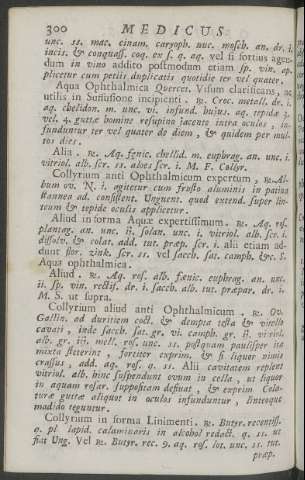 300 MEDICUS
unc. ss. mac. cinam. caryoph. unc. mosch. an. dr. i.
incis. & conquass. coq. ex s. q. aq. vel si fortius agen-
dum in vino addito postmodum etiam sp. vin. ap-
plicetur cum petiis duplicatis quotidie ter vel quater.
Aqua Ophthalmica Quercet. Visum clarificans, ac
utilis in Suffusione incipienti. ℞. Croc. metall. dr. i.
aq. chelidon. m. unc. vi. infund. hujus. aq. tepidæ 3.
vel. 4. guttæ homine resupino jacente intra oculos, in-
funduntur ter vel quater de diem, & quidem per mul-
tos dies.
Alia. ℞. Aq. fœnic. chelid. m. euphrag. an. unc. i.
vitriol. alb. scr. ss. aloes scr. i. M. F. Collyr.
Collyrium anti Ophthalmicum expertum, ℞. Al-
bum ov. N. i. agitetur cum frusto aluminis in patina
stannea ad. consistent. Unguent. quod extend. super lin-
teum & tepide oculis applicetur.
Aliud in forma Aquæ expertissimum. ℞. Aq. ros.
plantag. an. unc. ii. solan. unc. i. vitriol. alb. scr. i.
dissolv. & colat. add. tut. præp. scr. i. alii etiam ad-
dunt flor. zink. scr. ss. vel sacch. sat. camph. &c. S.
Aqua ophthalmica.
Aliud. ℞. Aq. ros. alb. fœnic. euphrag. an. unc.
ii. sp. vin. rectif. dr. i. sacch. alb. tut. præpar. dr. i.
M. S. ut supra.
Collyrium aliud anti Ophthalmicum. ℞. Ov.
Gallin. ad duritiem coct. & dempta testa & vitello
cavati, inde sacch. sat. gr. vi. camph. gr. ii. vitriol.
alb. gr. iij. mell. ros. unc. ss. postquam paulisper ita
mixta steterint, fortiter exprim. & si liquor nimis
crassus, add. aq. ros. q. ss. Alii cavitatem replent
vitriol. alb. hinc suspendunt ovum in cella, ut liquor
in aquam rosar. suppositam defluat, & exprim. Cola-
turæ guttæ aliquot in oculos infunduntur, linteoque
madido teguntur.
Collyrium in forma Linimenti. ℞. Butyr. recentiss.
q. pl. lapid. calaminaris in alcohol redact. q. ss. ut
fiat Ung. Vel ℞. Butyr. rec. 9. aq. ros. lot. unc. ss. tut.
præp.